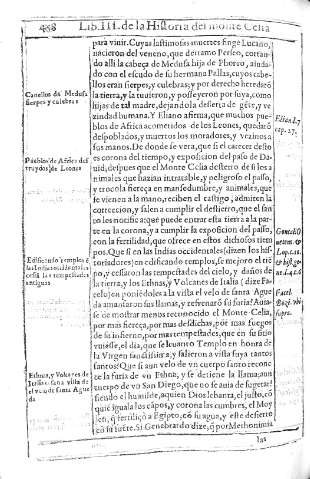 488 Lib. III. de la Historia del monte Celia
para viuir. Cuyas lastimosas muertes finge Lucano,
nacieron del veneno, que derramo Perseo, cortan-
do alli la cabeça de Medusa hija de Phorco, ayuda-
do con el escudo de su hermana Pallas, cuyos cabe-
llos eran sierpes, y culebras; y por derecho heredarõ
la tierra, y la tuuieron, y posseyeron por suya, como
hijas de tal madre, dejandola desierta de gẽte, y ve-
zindad humana. Y Eliano afirma, que muchos pue-
blos de Africa acometidos de los Leones, quedarõ
despoblados, y muertos los moradores, y vezinos a
sus manos. De donde se vera, que si el carecer desto
es corona del tiempo, y exposicion del passo de Da-
uid, despues que el Monte Celia
animales que hazian intractable, y peligroso el passo,
y trocò la fiereça en mansedumbre, y animales, que
se vienen a la mano, reciben el castigo, admiten la
correccion, y salen a cumplir el destierro, que el san-
to les notifica: què puede entrar esta tierra a la par-
te en la corona, y a cumplir la exposicion del passo,
con la fertilidad, que ofrece en estos dichosos tiem-
pos. Que si en las Indias occidentales (dizen los his-
toriadores) en edificando templos, se mejorò el riẽ-
po, y cessaron las tempestades del cielo, y daños de
la tierra, y los Ethnas, y Volcanes de Italia (dize Fa-
celo) en poniẽdoles à la vista el velo de santa Agueda
amansaron sus llamas, y refrenarõ su furia? Aura-
se de mostrar menos reconocido el Monte Celia,
por mas fiereça, por mas desdichas, por mas fuegos
de su infierno, por mas tempestades, que en su sitio
vuiesse, el dia, que se leuantò Templo en honra de
la Virgen santissima, y salieron a vista suya tantos
santos? Que si aun velo de vn cuerpo santo recono-
ce la furia de vn Ethna, y se detiene la llama; aun
cuerpo de vn San Diego, que no se auia de sugetar?
siendo el humilde, aquien Dios leuanta, el justo, cõ
quiẽ iguala los cãpos, y corona las cumbres, el Moy
sen, q̃ fertilizò a Egipto, cõ su agua, y este desierto
cõ su suerte. Si Genebrardo dize, q̃ por Methonimia
las
Cauellos de Medusa
sierpes y culebras
Pueblos de Africa des
truydos de Leones
Edificando templos
las Indias occidentales
cessã las tempestades
antiguas
Ethnas, y Volcanes de
Italia a la vista del
velo de santa Ague
da
Elian. l. 7
cap. 27.